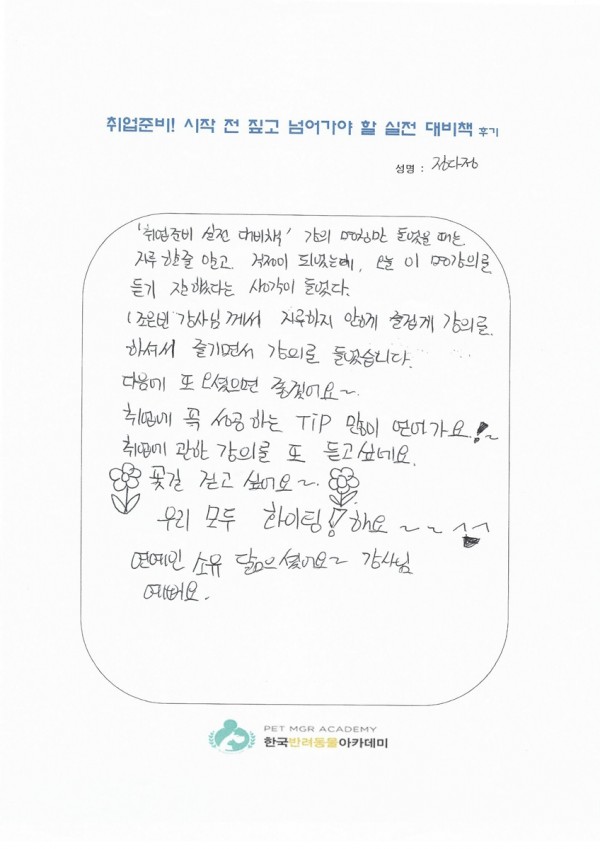 취업준비! 시작 전 짚고 넘어가야 할 실전 대비책 후기
성명 : 정다정
'취업준비 실전 대비책' 강의 명칭만 들었을 때는
지루한줄 알고 걱정이 되었는데, 오늘 이 명강의를
듣기 잘했다는 생각이 들었다.
조은빈 강사님께서 지루하지 않게 즐겁게 강의를
하셔서 즐기면서 강의를 들었습니다.
다음에 또 오셨으면 좋겠어요~
취업에 꼭 성공하는 TiP 많이 얻어가요!~
취업에 관한 강의를 또 듣고싶네요.
꽃길 걷고 싶어요~
우리 모두 화이팅! 해요 ~ ~ ^^
연예인 소유 닮으셨어요~ 강사님
예뻐요.
PET MGR ACADEMY
한국반려동물아카데미